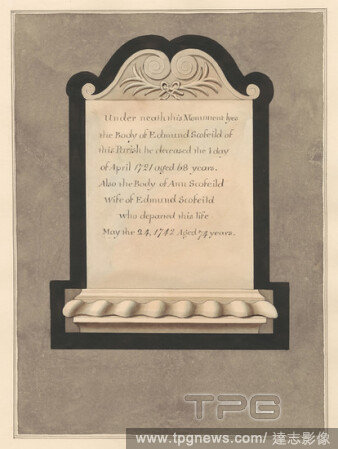 Under neath this Monument lyes
the Body of Edmund Scofeild of
this Parish he deceased the 1 day
of April 1721 aged 68 years.
Also the Body of Ann Scofeild
Wife of Edmund Scofeild
who departed this life
May the 24, 1742 Aged 74 years.
TPG
www.tpgnews.com/達志影像